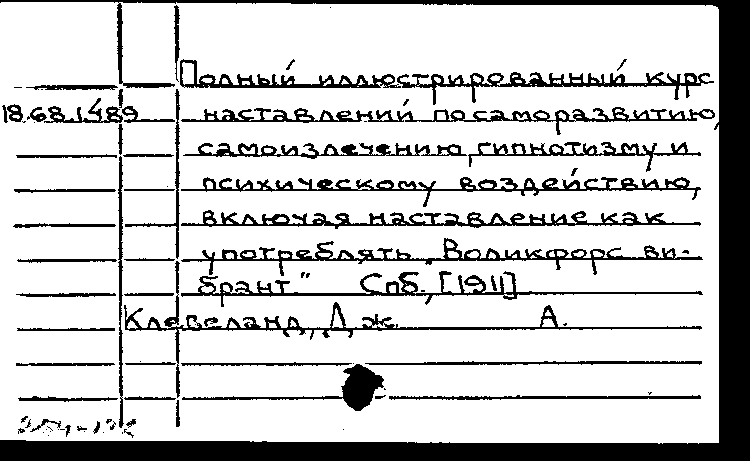 Полный иллюстрированный курс
18.68.1489 наставлений по саморазвитию,
самоизлечению, гипнотизму и
психическому воздействию,
включая наставление как
употреблять „Воликфорс ви-
брант." Спб., [1911]
Клевеланд, Дж. А.